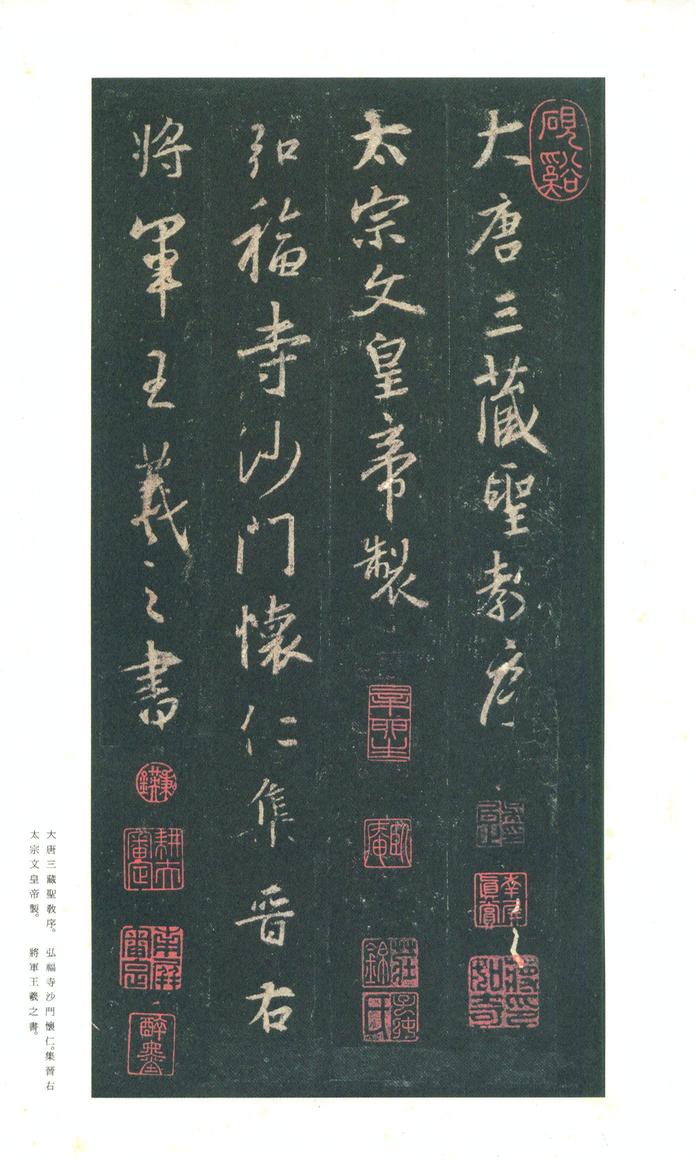 硯谿
大唐三藏聖教序
太宗文皇帝製
弘福寺沙門懷仁集晉右
將軍王羲之書
大唐三藏聖教序。 弘福寺沙門懷仁。集晉右
太宗文皇帝製。 將軍王羲之書。